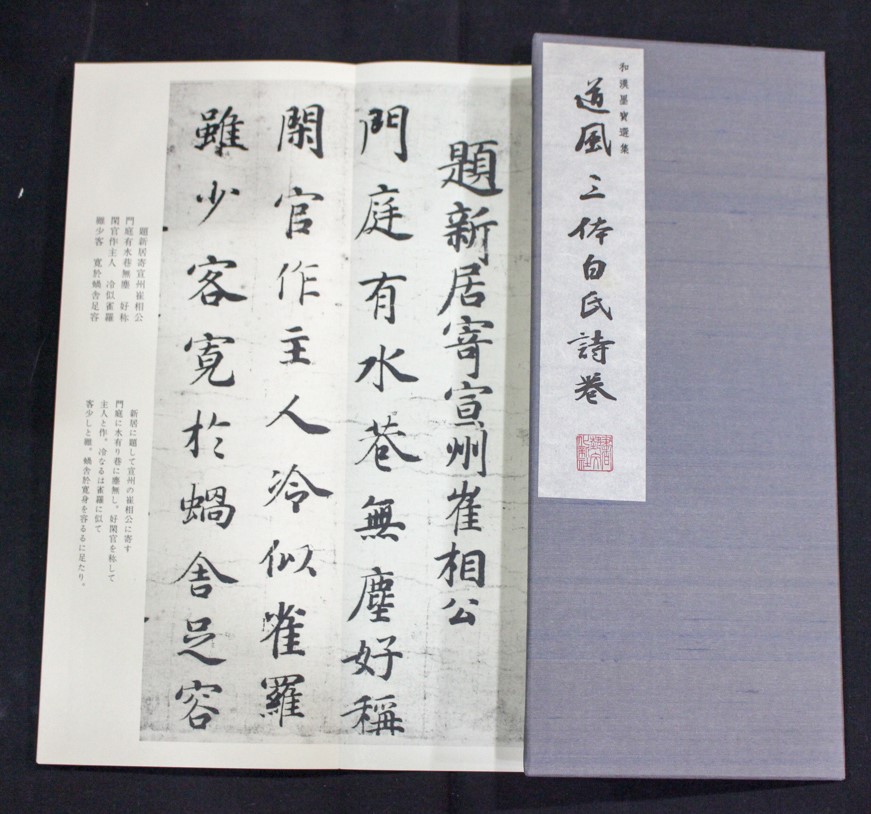 和漢墨寶選集
道風三体白氏詩巻
題新居寄宣州崔相公
門庭有水巷無塵好稱
閑官作主人冷似雀羅
雖少客寛於蝸舎足容
題新居寄宣州崔相公
門庭有水巷無塵 好称
閑官作主人 冷似雀羅
雖少客 寛於蝸舎足容
新居に題して宣州の崔相公に寄す
門庭に水有り巷に塵無し。好閑官を称して
主人と作。冷なるは雀羅に似て
客少しと雖。蝸舎於寛身を容るるに足たり。